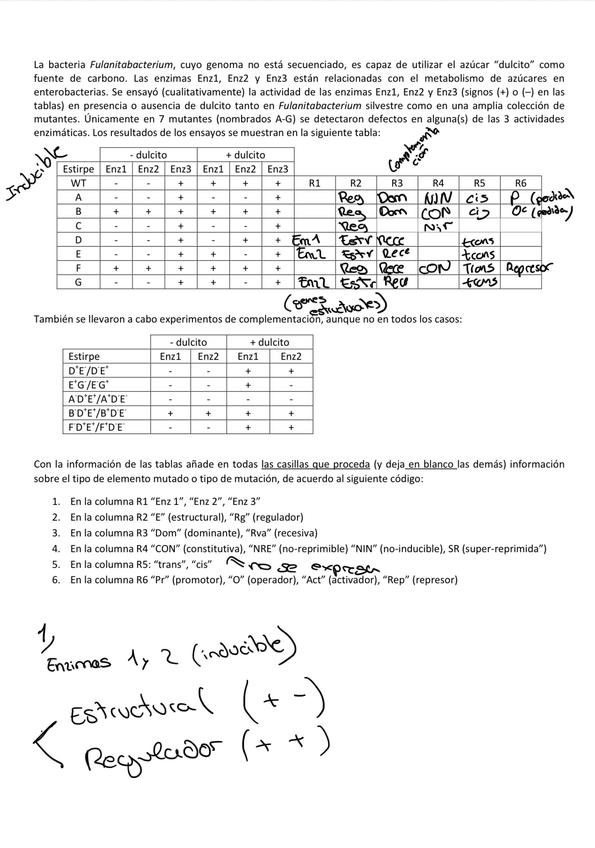 La bacteria Fulanitabacterium, cuyo genoma no está secuenciado, es capaz de utilizar el azúcar “dulcito” como
fuente de carbono. Las enzimas Enz1, Enz2 y Enz3 están relacionadas con el metabolismo de azúcares en
enterobacterias. Se ensayó (cualitativamente) la actividad de las enzimas Enz1, Enz2 y Enz3 (signos (+) o (–) en las
tablas) en presencia o ausencia de dulcito tanto en Fulanitabacterium silvestre como en una amplia colección de
mutantes. Únicamente en 7 mutantes (nombrados A-G) se detectaron defectos en alguna(s) de las 3 actividades
enzimáticas. Los resultados de los ensayos se muestran en la siguiente tabla:
Inducible
Complementa
ción
- dulcito + dulcito
Estirpe Enz1 Enz2 Enz3 Enz1 Enz2 Enz3
WT - - + + + + R1 R2 R3 R4 R5 R6
A - - + - - + Reg Dom NIN cis P (perdida)
B + + + + + + Reg Dom CON cis Oc (perdida)
C - - + - - + Reg Nin
D - - + - + + Em1 Estr rece trans
E - - + + - + Em2 Estr Rece trans
F + + + + + + Reg Rece CON Trans Represor
G - - + + - + Em2 Estr Rece trans
(genes
estructurales)
También se llevaron a cabo experimentos de complementación, aunque no en todos los casos:
- dulcito + dulcito
Estirpe Enz1 Enz2 Enz1 Enz2
D⁺E⁻/D⁻E⁺ - - + +
E⁺G⁻/E⁻G⁺ - - + -
A⁻D⁺E⁺/A⁺D⁻E⁻ - - - -
B⁻D⁺E⁺/B⁺D⁻E⁻ + + + +
F⁻D⁺E⁺/F⁺D⁻E⁻ - - + +
Con la información de las tablas añade en todas las casillas que proceda (y deja en blanco las demás) información
sobre el tipo de elemento mutado o tipo de mutación, de acuerdo al siguiente código:
1. En la columna R1 “Enz 1”, “Enz 2”, “Enz 3”
2. En la columna R2 “E” (estructural), “Rg” (regulador)
3. En la columna R3 “Dom” (dominante), “Rva” (recesiva)
4. En la columna R4 “CON” (constitutiva), “NRE” (no-reprimible) “NIN” (no-inducible), SR (super-reprimida”)
5. En la columna R5: “trans”, “cis” no se expresa
6. En la columna R6 “Pr” (promotor), “O” (operador), “Act” (activador), “Rep” (represor)
1,
Enzimas 1 y 2 (inducible)
Estructural (+ -)
Regulador (+ +)